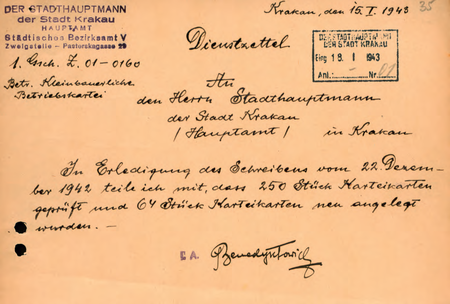 DER STADTHAUPTMANN
der Stadt Krakau
HAUPTAMT
Städtisches Bezirksamt V
Zweigstelle - Pastorskagasse 29
Krakau, den 15.I. 1943
35
Dienstzettel
DER STADTHAUPTMANN
DER STADT KRAKAU
Eing 18. I 1943
Anl.: Nr.
1. Gsch. Z. 01-0160
Betr. Kleinbauerliche
Betriebskartei
An
den Herrn Stadthauptmann
der Stadt Krakau
/Hauptamt/ in Krakau
In Erledigung des Schreibens vom 22. Dezem-
ber 1942 teile ich mit, dass 250 Stück Karteikarten
geprüft und 64 Stück Karteikarten neu angelegt
wurden. -